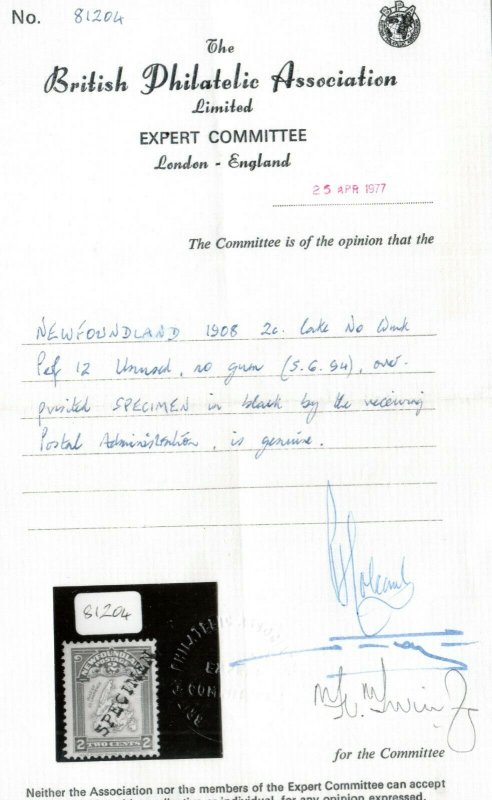 No. 81204
The
British Philatelic Association
Limited
EXPERT COMMITTEE
London - England
25 APR 1977
The Committee is of the opinion that the
NEWFOUNDLAND 1908 2c. lake No Wmk
Perf 12 Unused, no gum (S.G. 94), over-
printed SPECIMEN in black by the receiving
Postal Administration, is genuine.
81204
NEWFOUNDLAND
POSTAGE
SPECIMEN
2 TWO CENTS 2
for the Committee
Neither the Association nor the members of the Expert Committee can accept
for any opinion expressed.